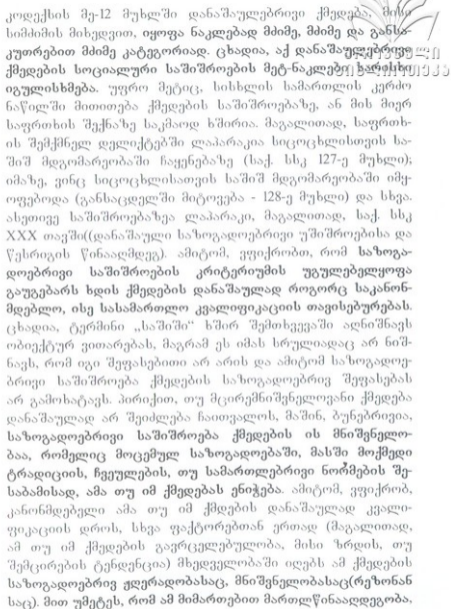 კოდექსის მე-12 მუხლში დანაშაულებრივი ქმედება, მისი
სიმძიმის მიხედვით, იყოფა ნაკლებად მძიმე, მძიმე და განსა-
კუთრებით მძიმე კატეგორიად. ცხადია, აქ დანაშაულებრივი
ქმედების სოციალური საშიშროების მეტ-ნაკლები ხარისხი
იგულისხმება. უფრო მეტიც, სისხლის სამართლის კერძო
ნაწილში მითითება ქმედების საშიშროებაზე, ან მის მიერ
საფრთხის შექმნაზე საკმაოდ ხშირია. მაგალითად, საფრთხ-
ის შემქმნელ დელიქტებში ლაპარაკია სიცოცხლისთვის სა-
შიშ მდგომარეობაში ჩაყენებაზე (საქ. სსკ 127-ე მუხლი);
იმაზე, ვინც სიცოცხლისათვის საშიშ მდგომარეობაში იმყ-
ოფებოდა (განსაცდელში მიტოვება - 128-ე მუხლი) და სხვა.
ასეთივე საშიშროებაზეა ლაპარაკი, მაგალითად, საქ. სსკ
XXX თავში((დანაშაული საზოგადოებრივი უშიშროებისა და
წესრიგის წინააღმდეგ). ამიტომ, ვფიქრობთ, რომ საზოგა-
დოებრივი საშიშროების კრიტერიუმის უგულებელყოფა
გაუგებარს ხდის ქმედების დანაშაულად როგორც საკანონ-
მდებლო, ისე სასამართლო კვალიფიკაციის თავისებურებას.
ცხადია, ტერმინი „საშიში“ ხშირ შემთხვევაში აღნიშნავს
ობიექტურ ვითარებას, მაგრამ ეს იმას სრულიადაც არ ნიშ-
ნავს, რომ იგი შეფასებითი არ არის და ამიტომ საზოგადოე-
ბრივი საშიშროება ქმედების საზოგადოებრივ შეფასებას
არ გამოხატავს. პირიქით, თუ მცირემნიშვნელოვანი ქმედება
დანაშაულად არ შეიძლება ჩაითვალოს, მაშინ, ბუნებრივია,
საზოგადოებრივი საშიშროება ქმედების ის მნიშვნელო-
ბაა, რომელიც მოცემულ საზოგადოებაში, მასში მოქმედი
ტრადიციის, ჩვეულების, თუ სამართლებრივი ნორმების შე-
საბამისად, ამა თუ იმ ქმედებას ენიჭება. ამიტომ, ვფიქრობ,
კანონმდებელი ამა თუ იმ ქმდების დანაშაულად კვალი-
ფიკაციის დროს, სხვა ფაქტორებთან ერთად (მაგალითად,
ამ თუ იმ ქმედების გავრცელებულობა, მისი ზრდის, თუ
შემცირების ტენდენცია) მხედველობაში იღებს ამ ქმედების
საზოგადოებრივ ჟღერადობასაც, მნიშვნელობასაც(რეზონან
საც). მით უმეტეს, რომ ამ მიმართებით მართლწინააღდეგობა,